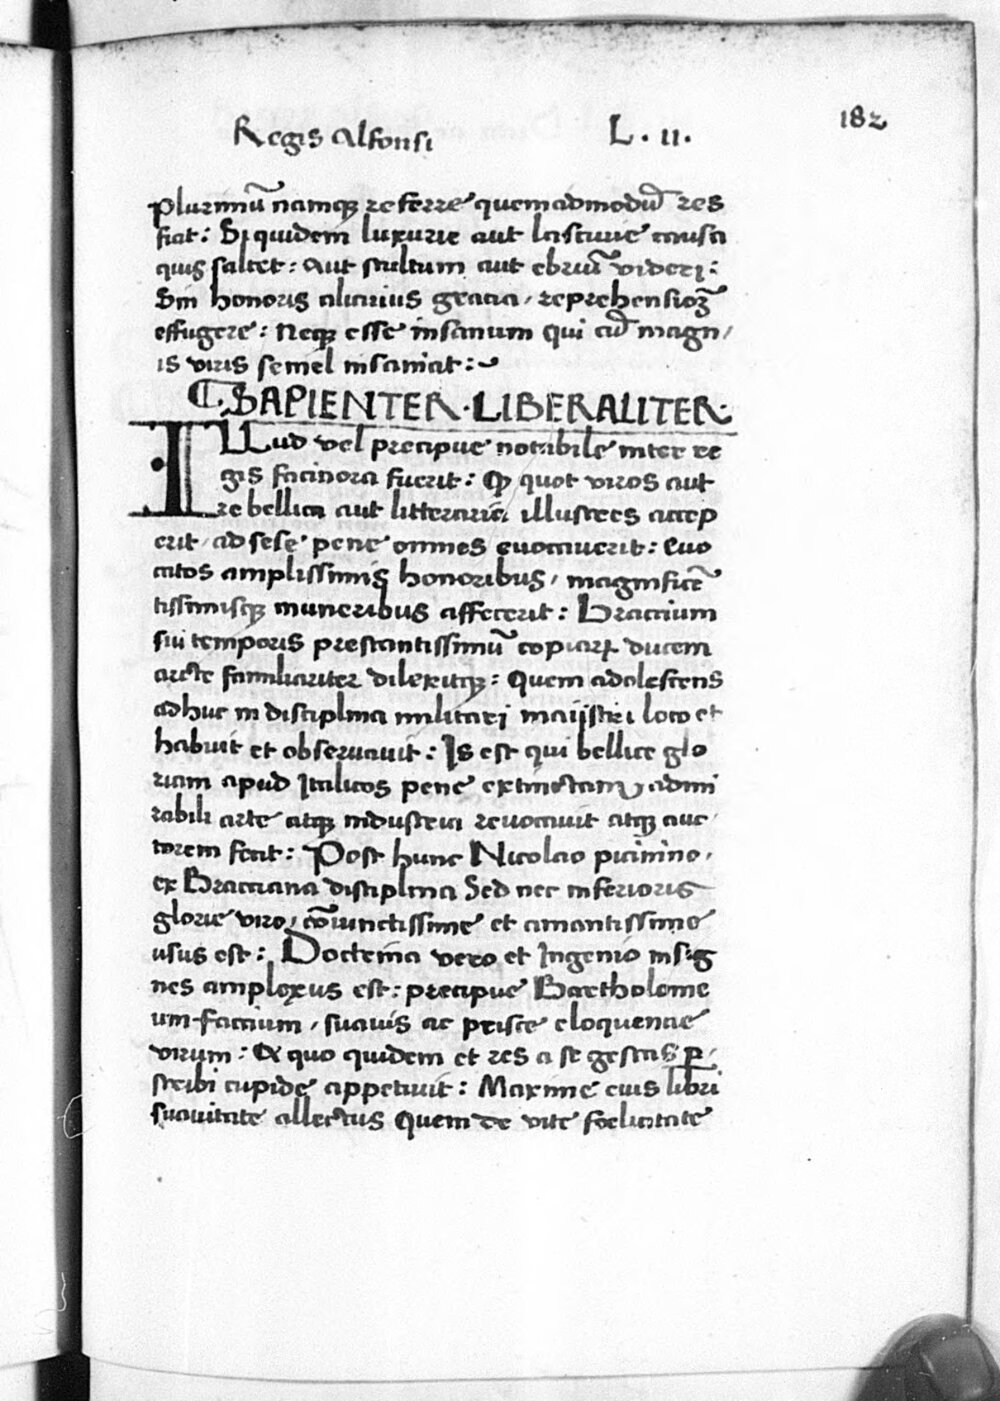 Regis Alfonsi L. II. 182
plurimū namqꝫ referre quemadmodū res
fiat: Si quidem luxurie aut lascivie causa
quis saltet: Aut stultum aut ebriū videri:
Sin honoris alicuius gracia, reprehensionē
effugere: Neqꝫ esse insanum qui cū magn,
is viris semel insaniat:
SAPIENTER · LIBERALITER:
ILLud vel precipue notabile inter re
gis facinora fuerit: Qꝫ quot viros aut
re bellica aut litteraria illustres accep
erit, ad sese pene omnes evocaverit: Evo
catos amplissimis honoribus, magnificē
tissimisqꝫ muneribus affecerit: Braccium
sui temporis prestantissimū copiaꝝ ducem
arcte familiariter dilexitqꝫ: Quem adolescens
adhuc in disciplina militari magistri loco et
habuit et observavit: Is est qui bellice glo
riam apud Italicos pene extinctam, admi
rabili arte atqꝫ industria revocavit atqꝫ auc,
torem fecit: Post hunc Nicolao picinino,
ex Bracciana disciplina Sed nec inferioris
glorie viro, cōiunctissime et amantissime
usus est: Doctrina vero et Ingenio insig
nes amplexus est: precipue Bartholome
um faccium, suavis ac prisce eloquencie
virum: Ex quo quidem et res a se gestas ꝑ,
scribi cupide appetivit: Maxime eius libri
suavitate allectus Quem de vite foelicitate